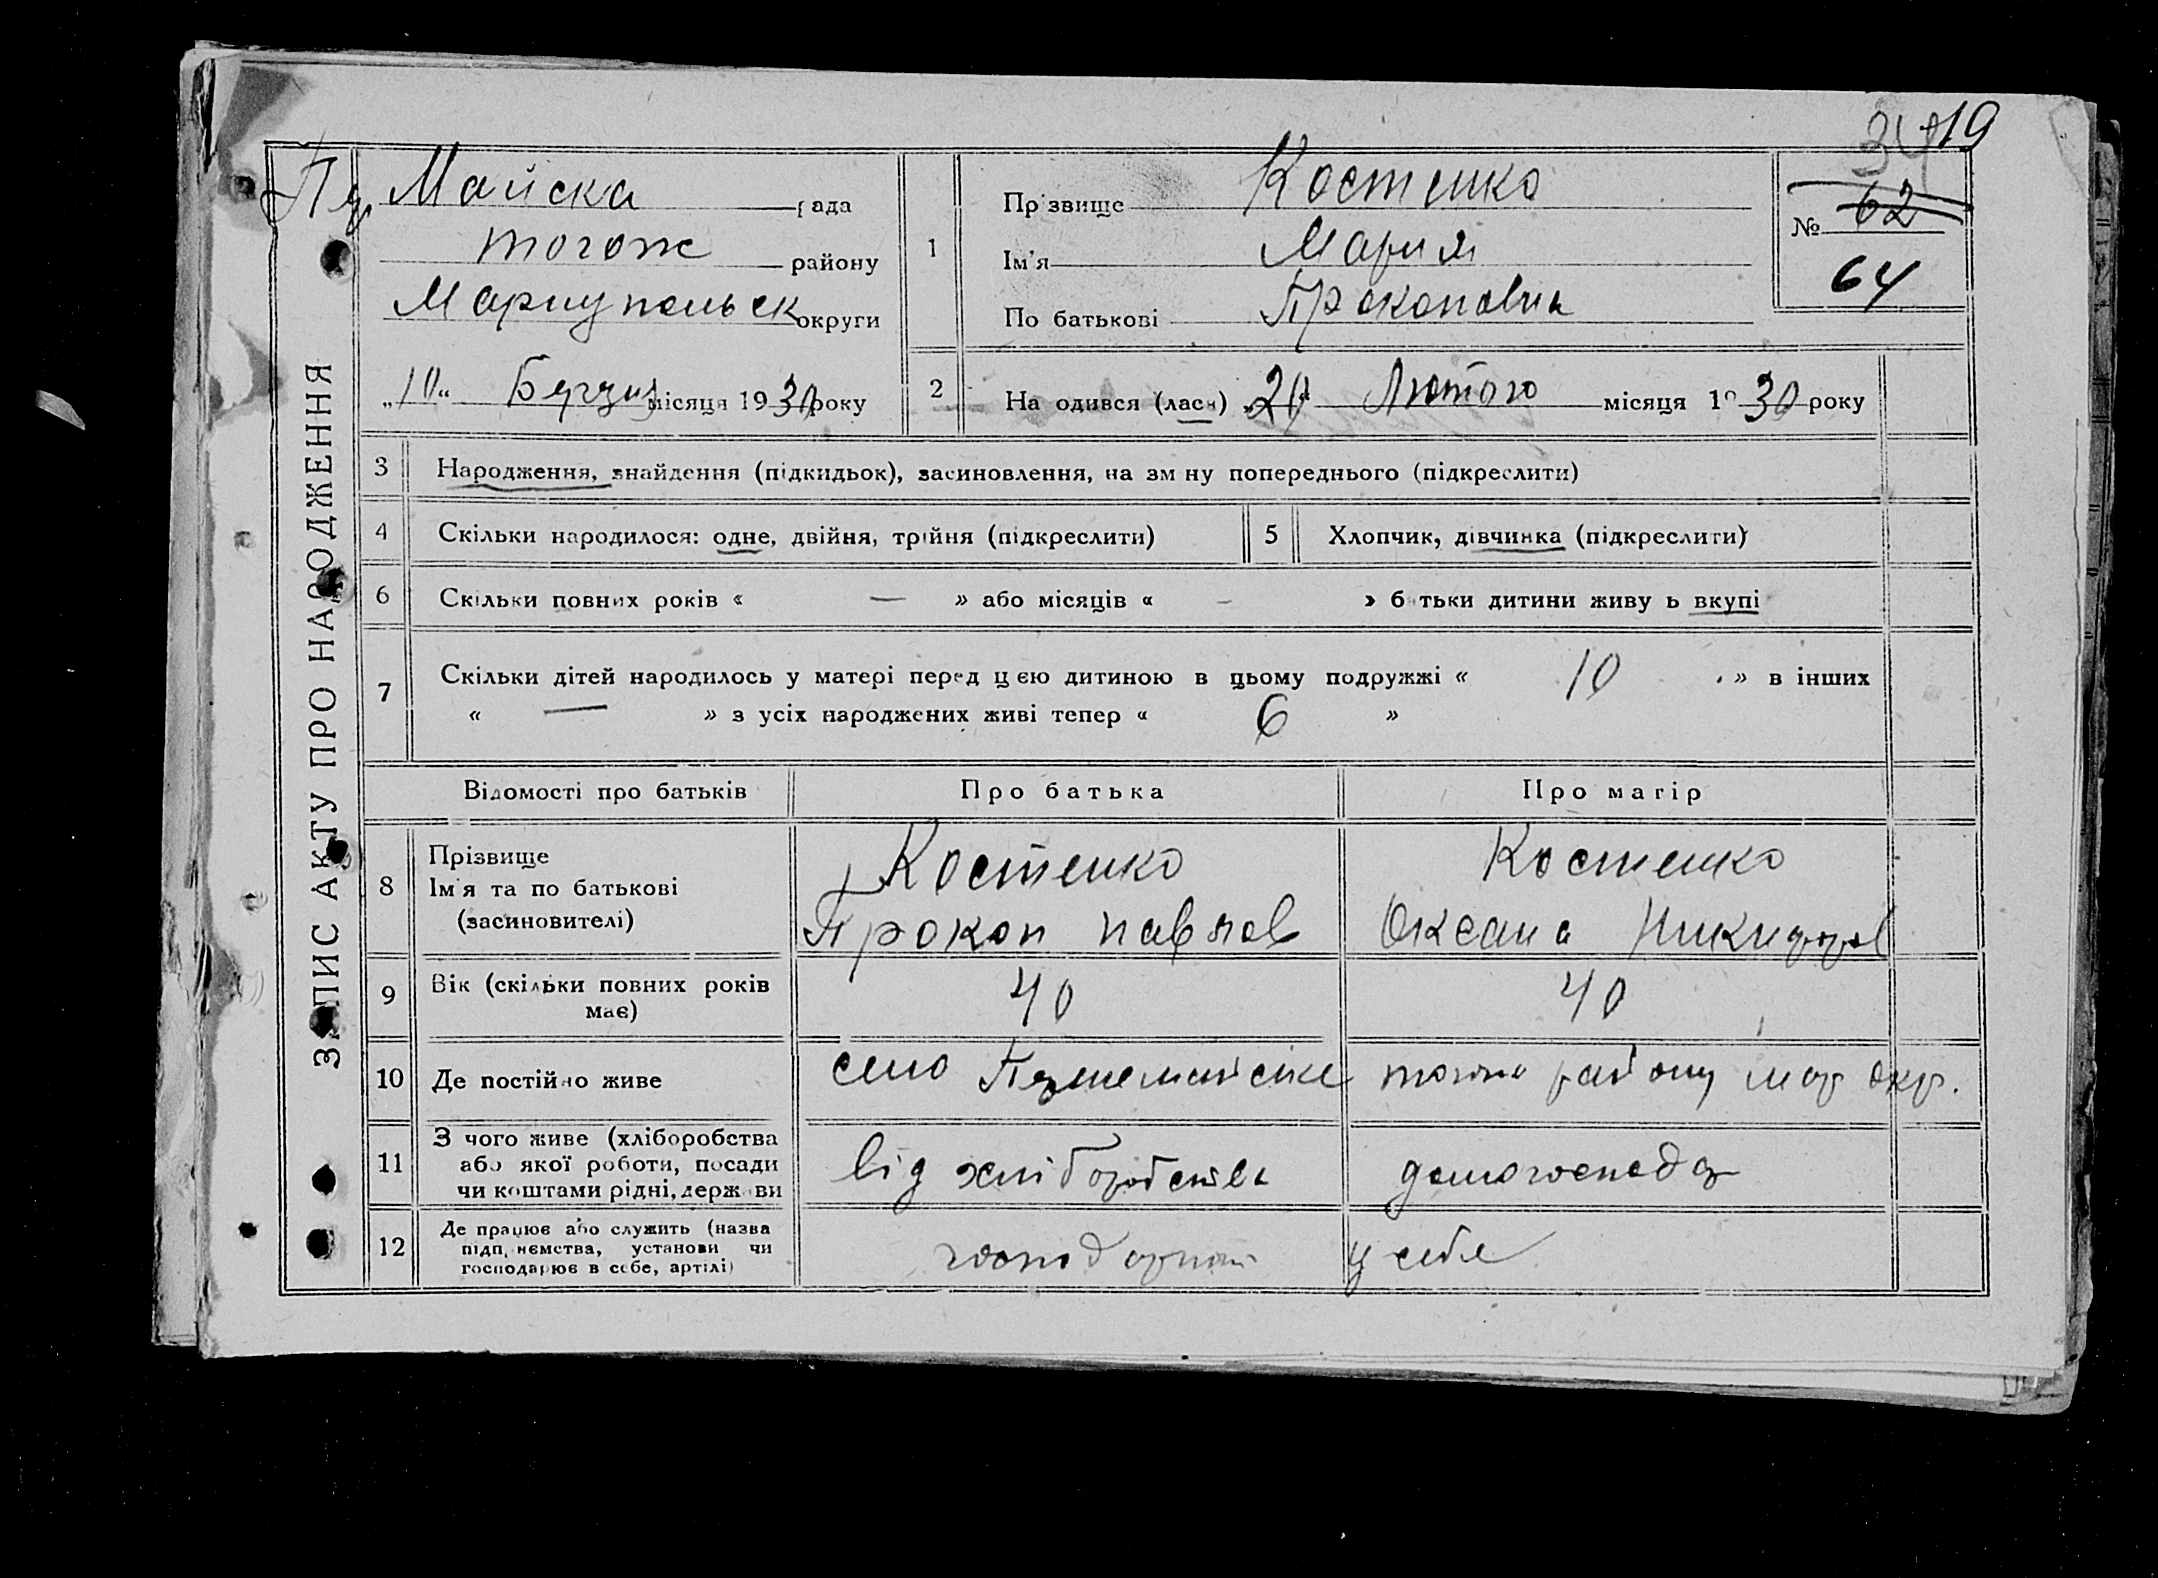 34 19
ЗАПИС АКТУ ПРО НАРОДЖЕННЯ
Майска рада
тогож району
Мариупольск округи
„10“ Берзня місяця 1930 року
1
Прізвище Костенко
Ім'я Мария
По батькові Прокоповна
№ 62
64
2
Народився (лась) 20 Лютого місяця 1930 року
3 Народження, знайдення (підкидьок), засиновлення, на зміну попереднього (підкреслити)
4 Скільки народилося: одне, двійня, трійня (підкреслити) 5 Хлопчик, дівчинка (підкреслити)
6 Скільки повних років « — » або місяців « – » батьки дитини живуть вкупі
7 Скільки дітей народилось у матері перед цією дитиною в цьому подружжі « 10 » в інших
« — » з усіх народжених живі тепер « 6 »
Відомості про батьків Про батька Про матір
8 Прізвище
Ім'я та по батькові
(засиновителі)
Костенко
Прокоп Павлов
Костенко
Оксана Никифор
9 Вік (скільки повних років
має)
40 40
10 Де постійно живе село району мар окр.
11 З чого живе (хліборобства
або якої роботи, посади
чи коштами рідні, держави
від хліборобства домогоспода
12 Де працює або служить (назва
підприємства, установи чи
господарює в себе, артілі)
у себе